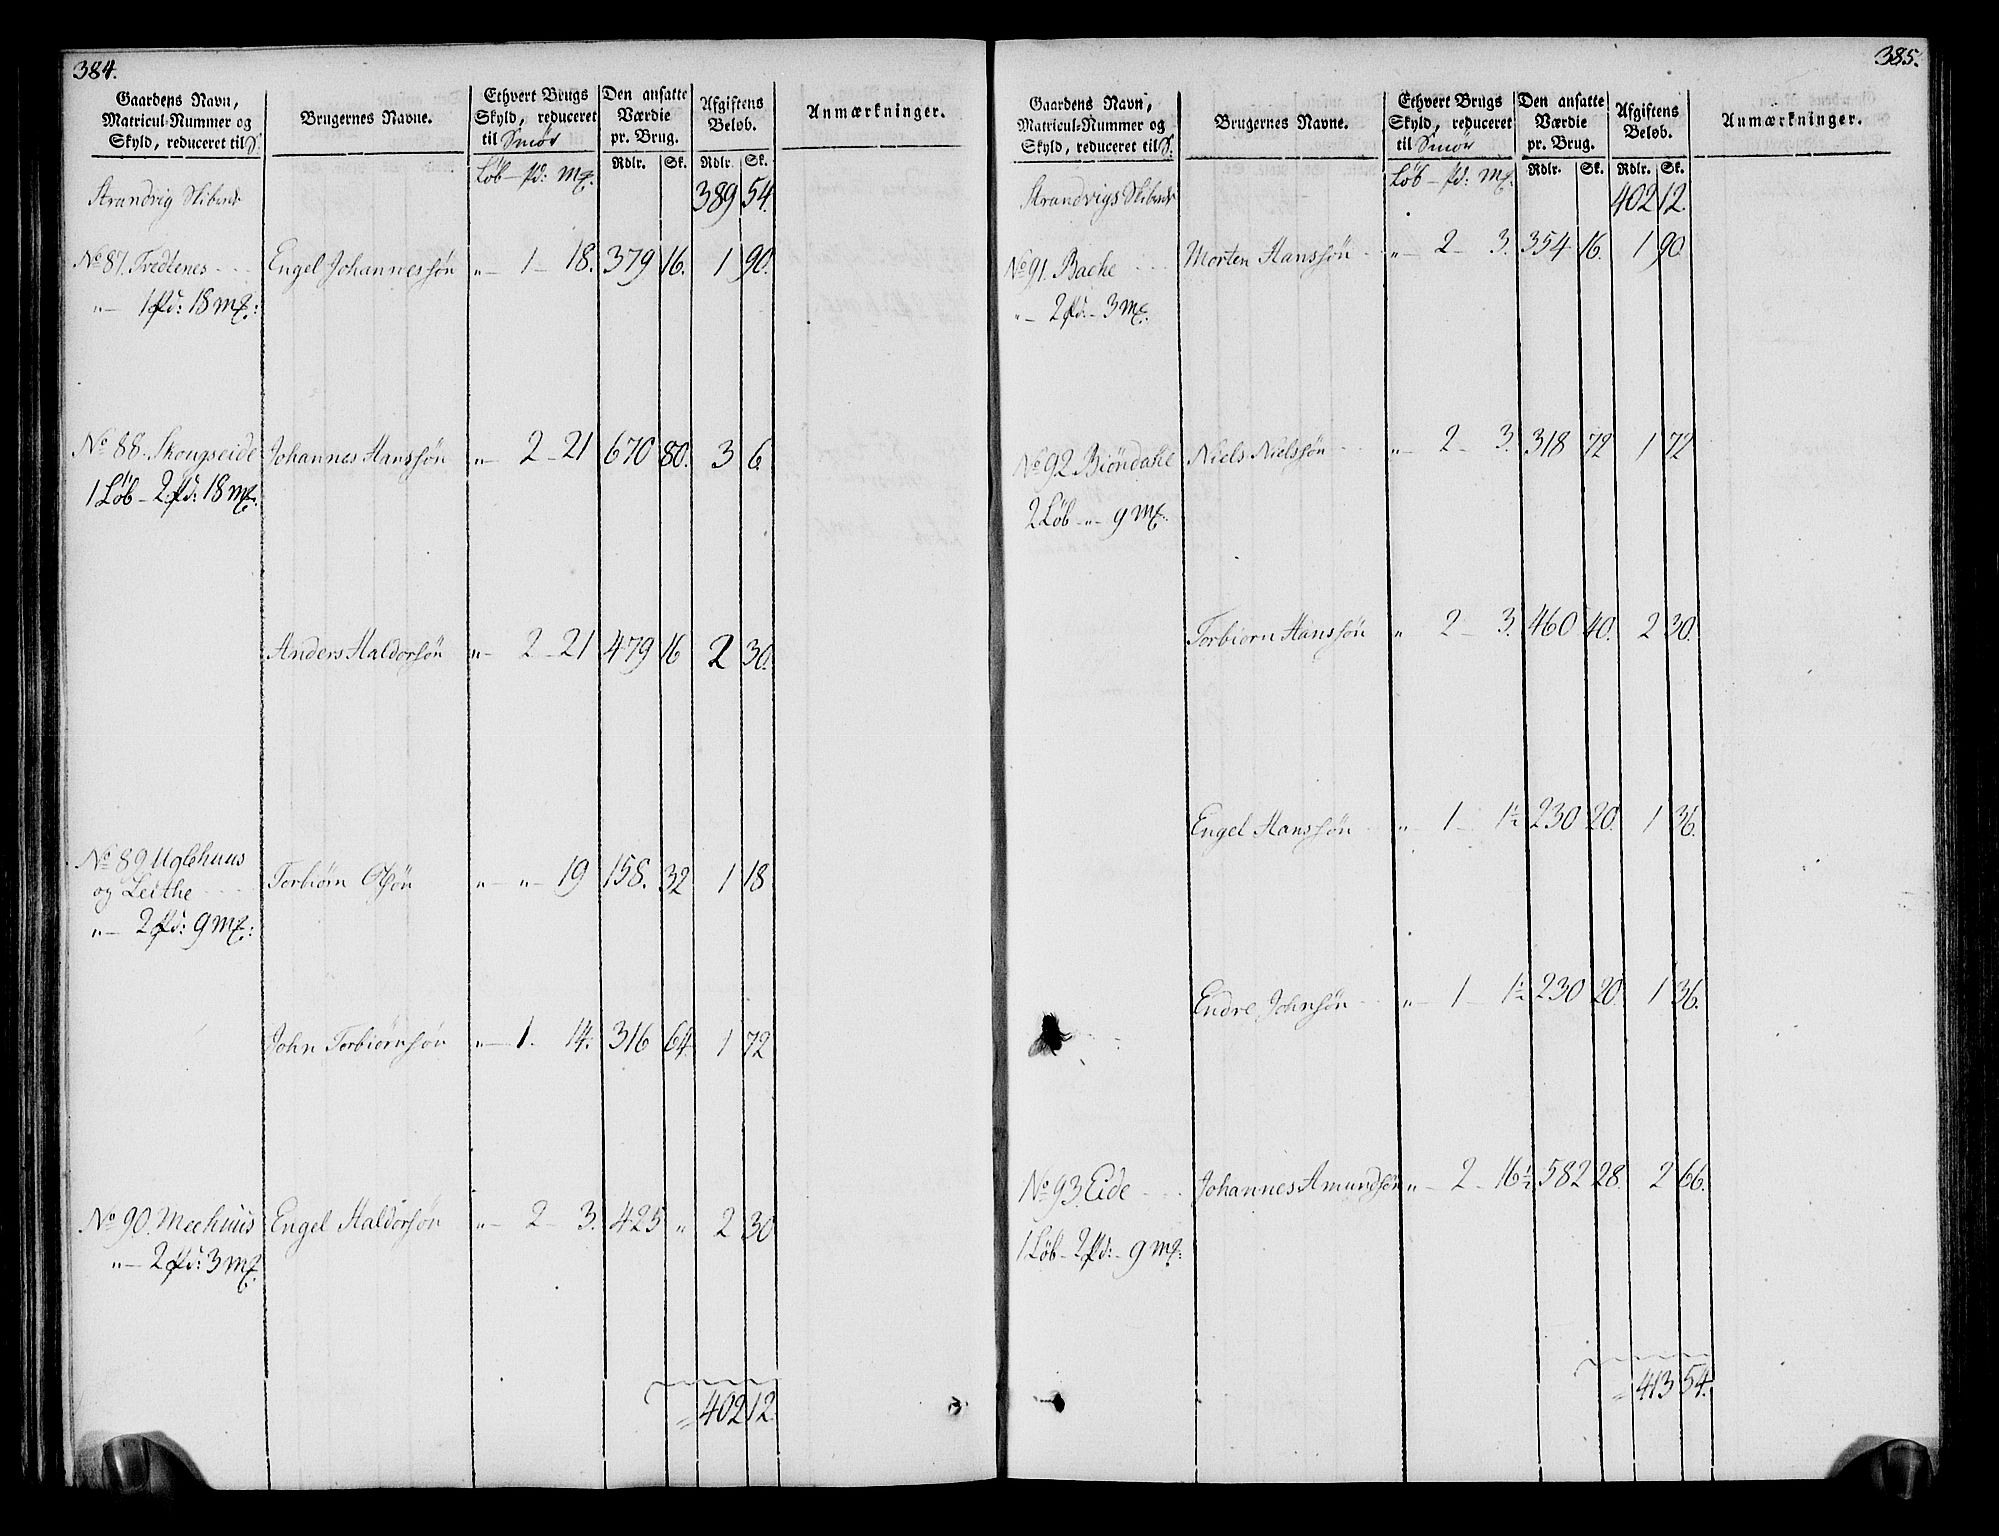 384.
Gaardens Navn, Matricul-Nummer og Skyld, reduceret til S. | Brugernes Navne. | Ethvert Brugs Skyld, reduceret til Smør | Den ansatte Værdie pr. Brug. | Afgiftens Beløb. | Anmærkninger.
Løb — pd: Mk. | Rdlr. | Sk. | Rdlr. | Sk.
Strandvig Skibrede 389 54.
No 87. Tredtenes Engel Johannessøn „ — 1 — 18. 379 16. 1 90.
„ — 1 pd: 18 mk:
No 88. Skougseide Johannes Hanssøn „ — 2 — 21 670 80. 3 6.
1 Løb — 2 pd: 18 mk:
Anders Haldorsøn „ — 2 — 21 479 16 2 30.
No 89. Uglehuus
og Leithe Torbiørn Olsøn „ — „ — 19 158. 32 1 18
„ — 2 pd: 9 mk:
John Torbiørnsøn „ — 1. 14. 316 64 1 72
No 90. Meehuus Engel Haldorsøn „ — 2 — 3. 425 „ 2 30
„ — 2 pd: 3 mk.
402 12.
385.
Gaardens Navn, Matricul-Nummer og Skyld, reduceret til S. | Brugernes Navne. | Ethvert Brugs Skyld, reduceret til Smør | Den ansatte Værdie pr. Brug. | Afgiftens Beløb. | Anmærkninger.
Løb — pd: Mk. | Rdlr. | Sk. | Rdlr. | Sk.
Strandvigs Skibrede 402 12.
No 91. Bache Morten Hanssøn „ — 2 — 3. 354 16. 1 90.
„ — 2 pd. — 3 mk:
No 92 Biøndahl Niels Nielssøn „ — 2 — 3. 318 72 1 72
2 Løb — „ — 9 mk.
Torbiørn Hanssøn „ 2 — 3. 460 40. 2 30.
Engel Hanssøn „ — 1 — 1½ 230 20. 1 36.
Endre Johnsøn „ — 1 — 1½ 230 20. 1 36.
No 93. Eide Johannes Amundsøn „ — 2 — 16½ 582 28. 2 66.
1 Løb — 2 pd: — 9 mk:
413 54.